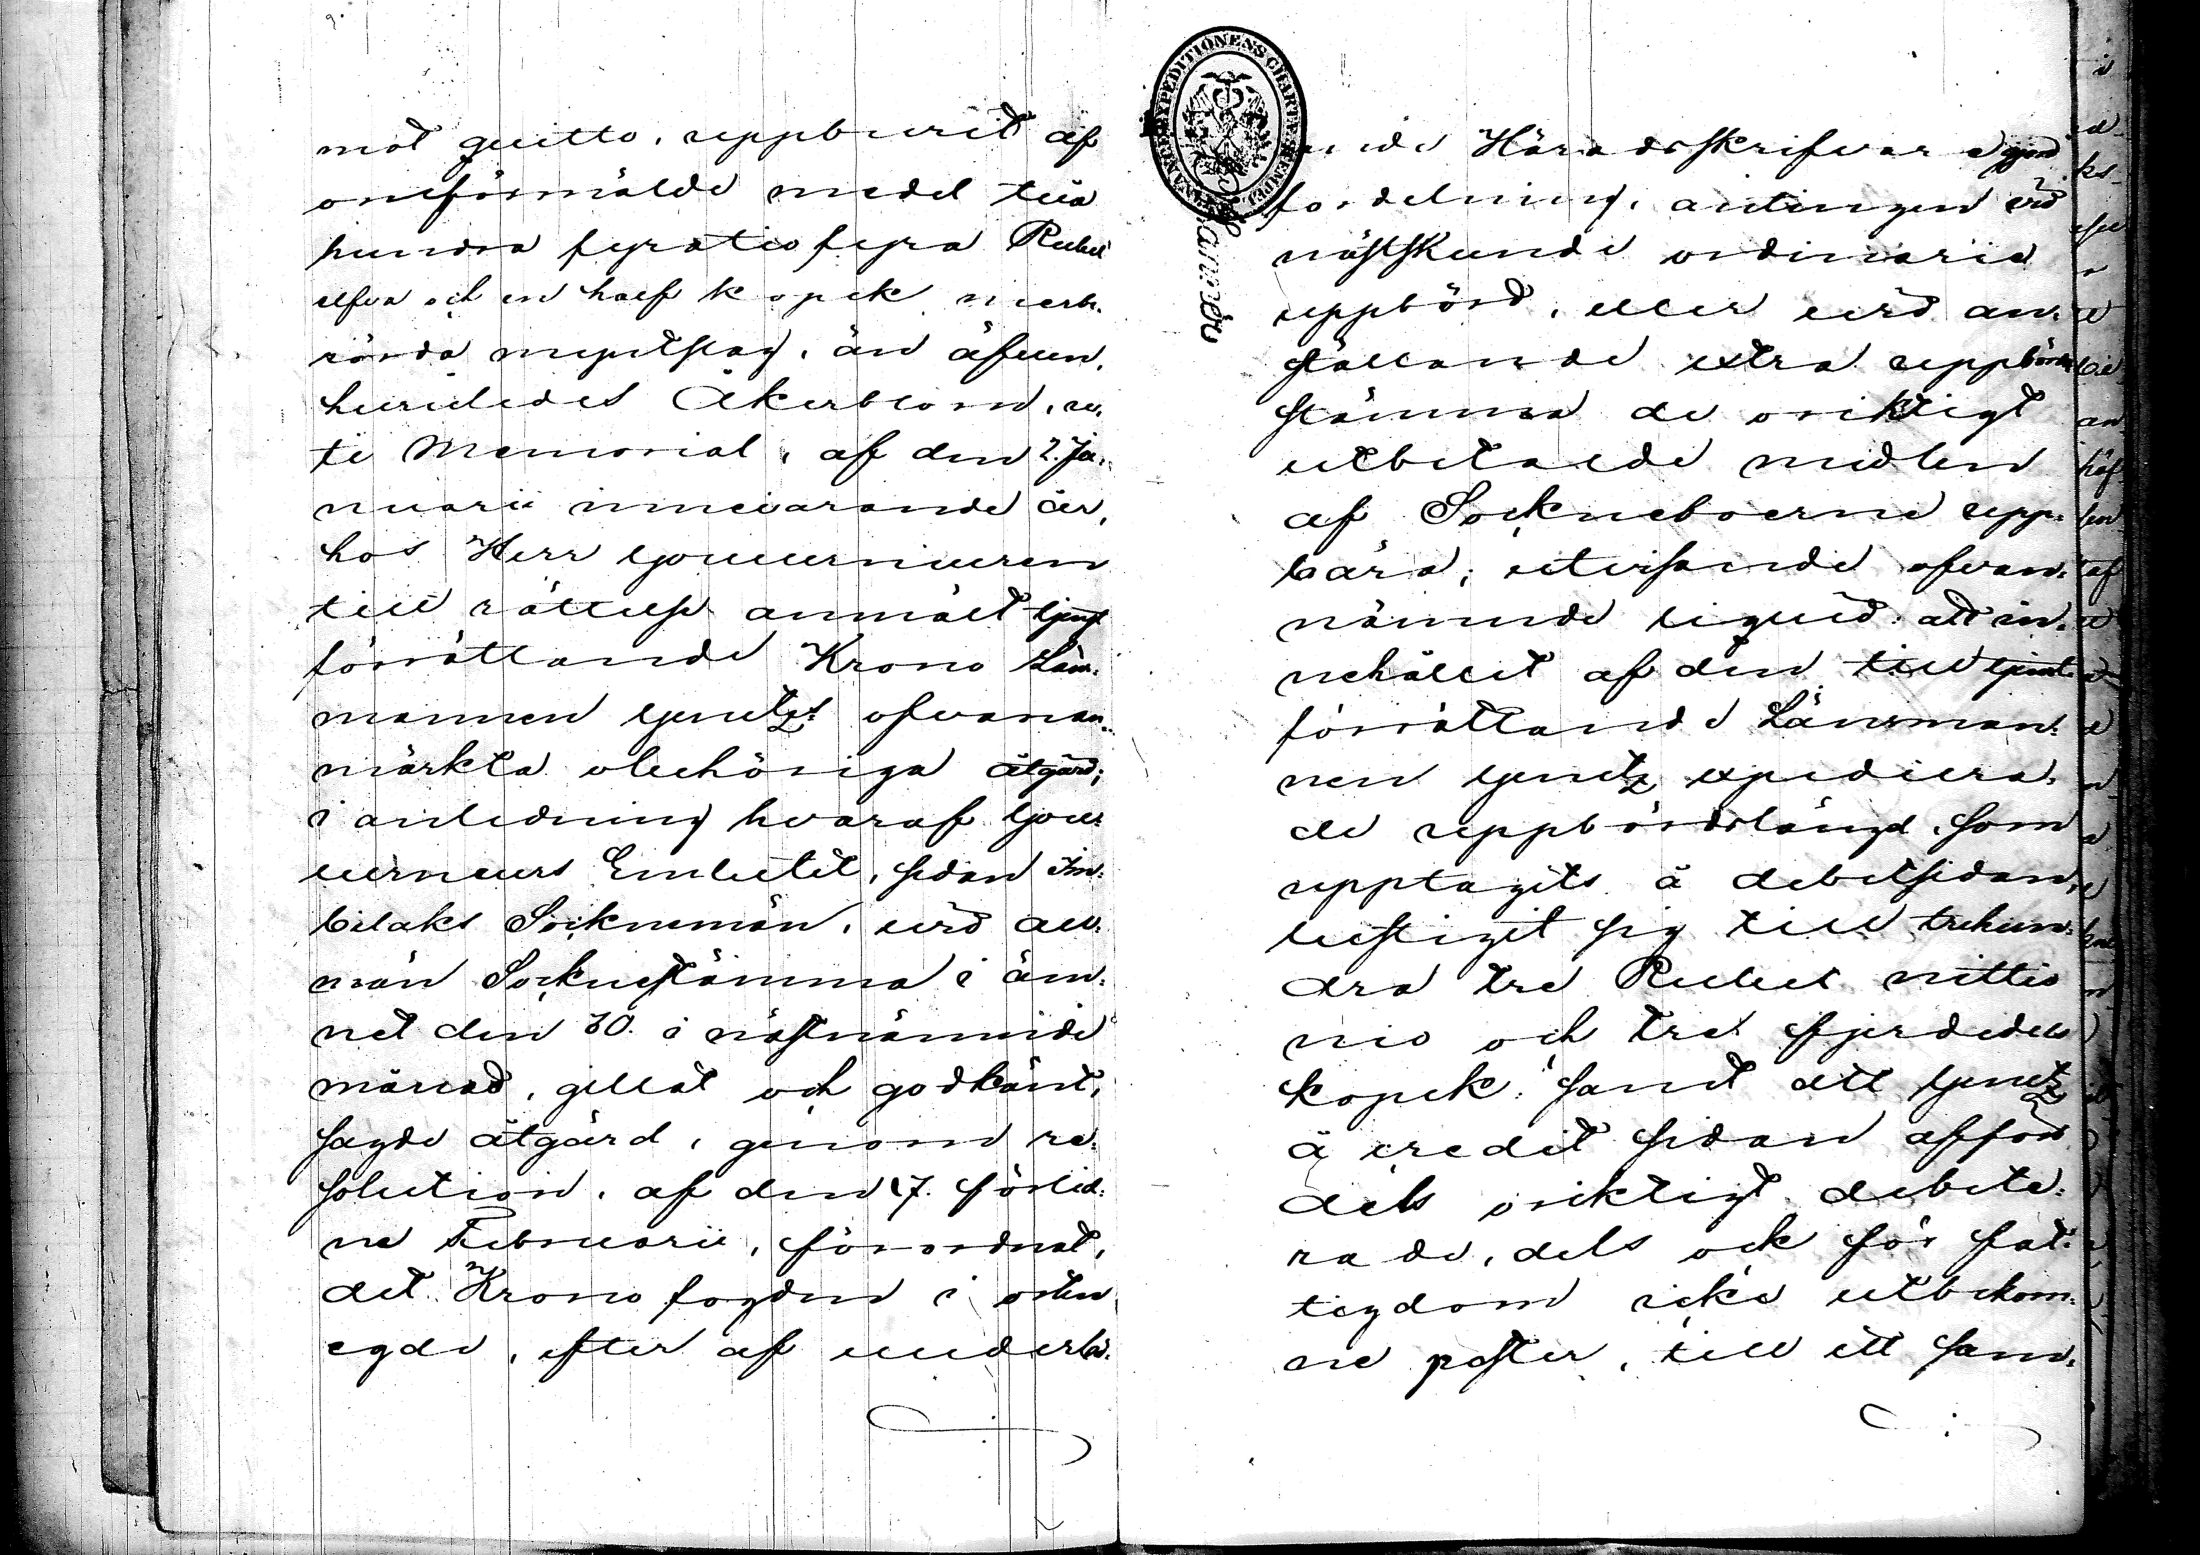 mot quitto, uppburit af
omförmälde medel två
hundra fyratiofyra Rubel
elfva och en half kopek merbe.
rörda myntslag, än äfven,
huruledes Åkerblom, uti
Memorial, af den 2. Ja-
nuarii innevarande år,
hos Herr Gouverneuren
till rättelse anmält tjenst
förrättande Krono Läns-
mannen Genetz's ofvanan-
märkta obehöriga åtgärd;
i anledning hvaraf Gou-
verneurs Embetet, sedan Im-
bilaks Sockenemän, vid all-
män Sockenestämma i äm-
net den 30. i nästnämnde
månad, gillat och godkänt,
sagde åtgärd, genom re-
solution, af den 17. förlid-
ne Februarii, förordnat,
det Kronofogden i orten
egde, efter af vederbö-
rande Häradsskrifvare gjord
fördelning, antingen vid
nästskeende ordinarie
uppbörd, eller vid an-
ställande extra uppbörds
stämma de oriktigt
utbetalde medlen
af Sockneboerne upp-
bära; utvisande ofvan-
nämnde liquid: att in-
nehållet af den till tjenst-
förrättande Länsman-
nen Genetz expediera-
de uppbördslängd, som
upptagits å debetsidan,
bestigit sig till trehun-
dra tre Rubel nittio
nio och tre fjerdedels
kopek: samt att Genetz
å credit sidan affört
dels oriktigt debite-
rade, dels ock för fat-
tigdom icke utbekom-
ne poster, till ett sam-